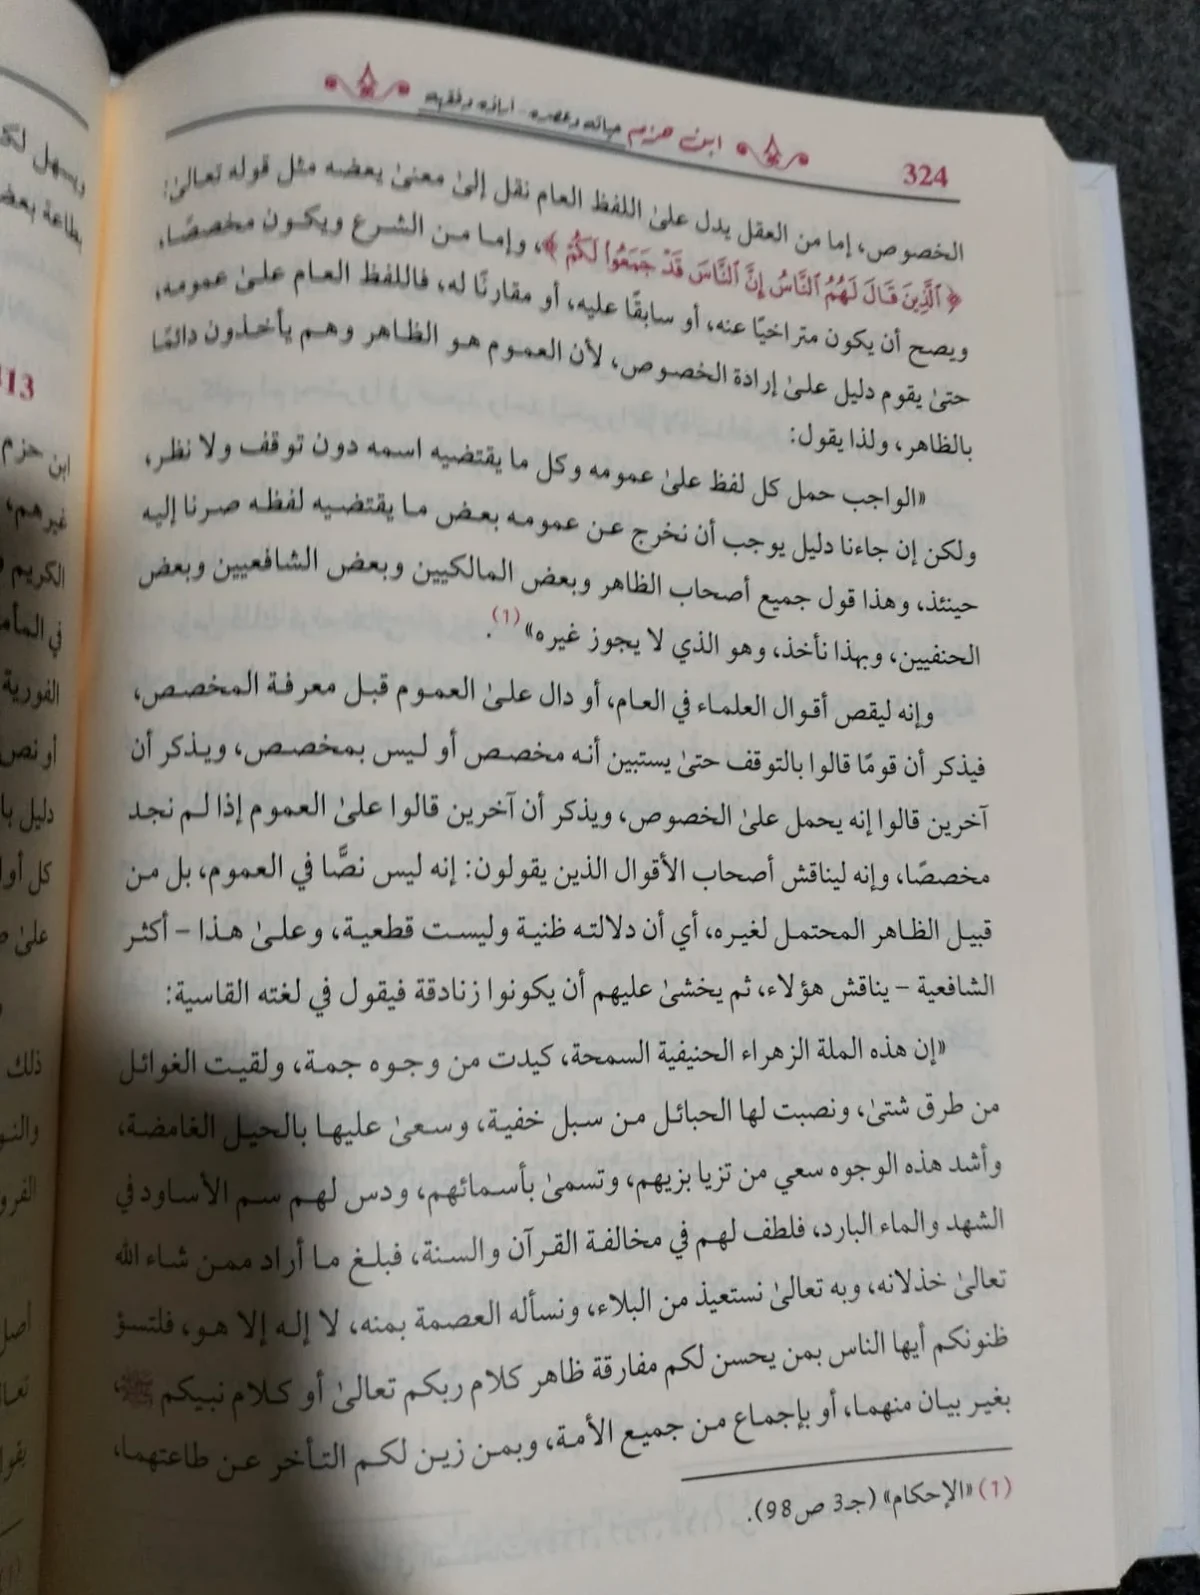 324
ابن حزم حياته وعصره - آراؤه وفقهه
الخصوص، إما من العقل يدل علىٰ اللفظ العام نقل إلىٰ معنىٰ يعضه مثل قوله تعالىٰ:
﴿ ٱلَّذِينَ قَالَ لَهُمُ ٱلنَّاسُ إِنَّ ٱلنَّاسَ قَدْ جَمَعُوا۟ لَكُمْ ﴾، وإما من الشرع ويكون مخصصًا،
ويصح أن يكون متراخيًا عنه، أو سابقًا عليه، أو مقارنًا له، فاللفظ العام علىٰ عمومه،
حتىٰ يقوم دليل علىٰ إرادة الخصوص، لأن العموم هو الظاهر وهم يأخذون دائمًا
بالظاهر، ولذا يقول:
«الواجب حمل كل لفظ علىٰ عمومه وكل ما يقتضيه اسمه دون توقف ولا نظر،
ولكن إن جاءنا دليل يوجب أن نخرج عن عمومه بعض ما يقتضيه لفظه صرنا إليه
حينئذ، وهذا قول جميع أصحاب الظاهر وبعض المالكيين وبعض الشافعيين وبعض
الحنفيين، وبهذا نأخذ، وهو الذي لا يجوز غيره»(1).
وإنه ليقص أقوال العلماء في العام، أو دال علىٰ العموم قبل معرفة المخصص،
فيذكر أن قومًا قالوا بالتوقف حتىٰ يستبين أنه مخصص أو ليس بمخصص، ويذكر أن
آخرين قالوا إنه يحمل علىٰ الخصوص، ويذكر أن آخرين قالوا علىٰ العموم إذا لم نجد
مخصصًا، وإنه ليناقش أصحاب الأقوال الذين يقولون: إنه ليس نصًّا في العموم، بل من
قبيل الظاهر المحتمل لغيره، أي أن دلالته ظنية وليست قطعية، وعلىٰ هذا - أكثر
الشافعية - يناقش هؤلاء، ثم يخشىٰ عليهم أن يكونوا زنادقة فيقول في لغته القاسية:
«إن هذه الملة الزهراء الحنيفية السمحة، كيدت من وجوه جمة، ولقيت الغوائل
من طرق شتىٰ، ونصبت لها الحبائل من سبل خفية، وسعىٰ عليها بالحيل الغامضة،
وأشد هذه الوجوه سعي من تزيا بزيهم، وتسمىٰ بأسمائهم، ودس لهم سم الأساود في
الشهد والماء البارد، فلطف لهم في مخالفة القرآن والسنة، فبلغ ما أراد ممن شاء الله
تعالىٰ خذلانه، وبه تعالىٰ نستعيذ من البلاء، ونسأله العصمة بمنه، لا إله إلا هو، فلتسؤ
ظنونكم أيها الناس بمن يحسن لكم مفارقة ظاهر كلام ربكم تعالىٰ أو كلام نبيكم ﷺ،
بغير بيان منهما، أو بإجماع من جميع الأمة، وبمن زين لكم التأخر عن طاعتهما،
(1) «الإحكام» (جـ3 ص98).